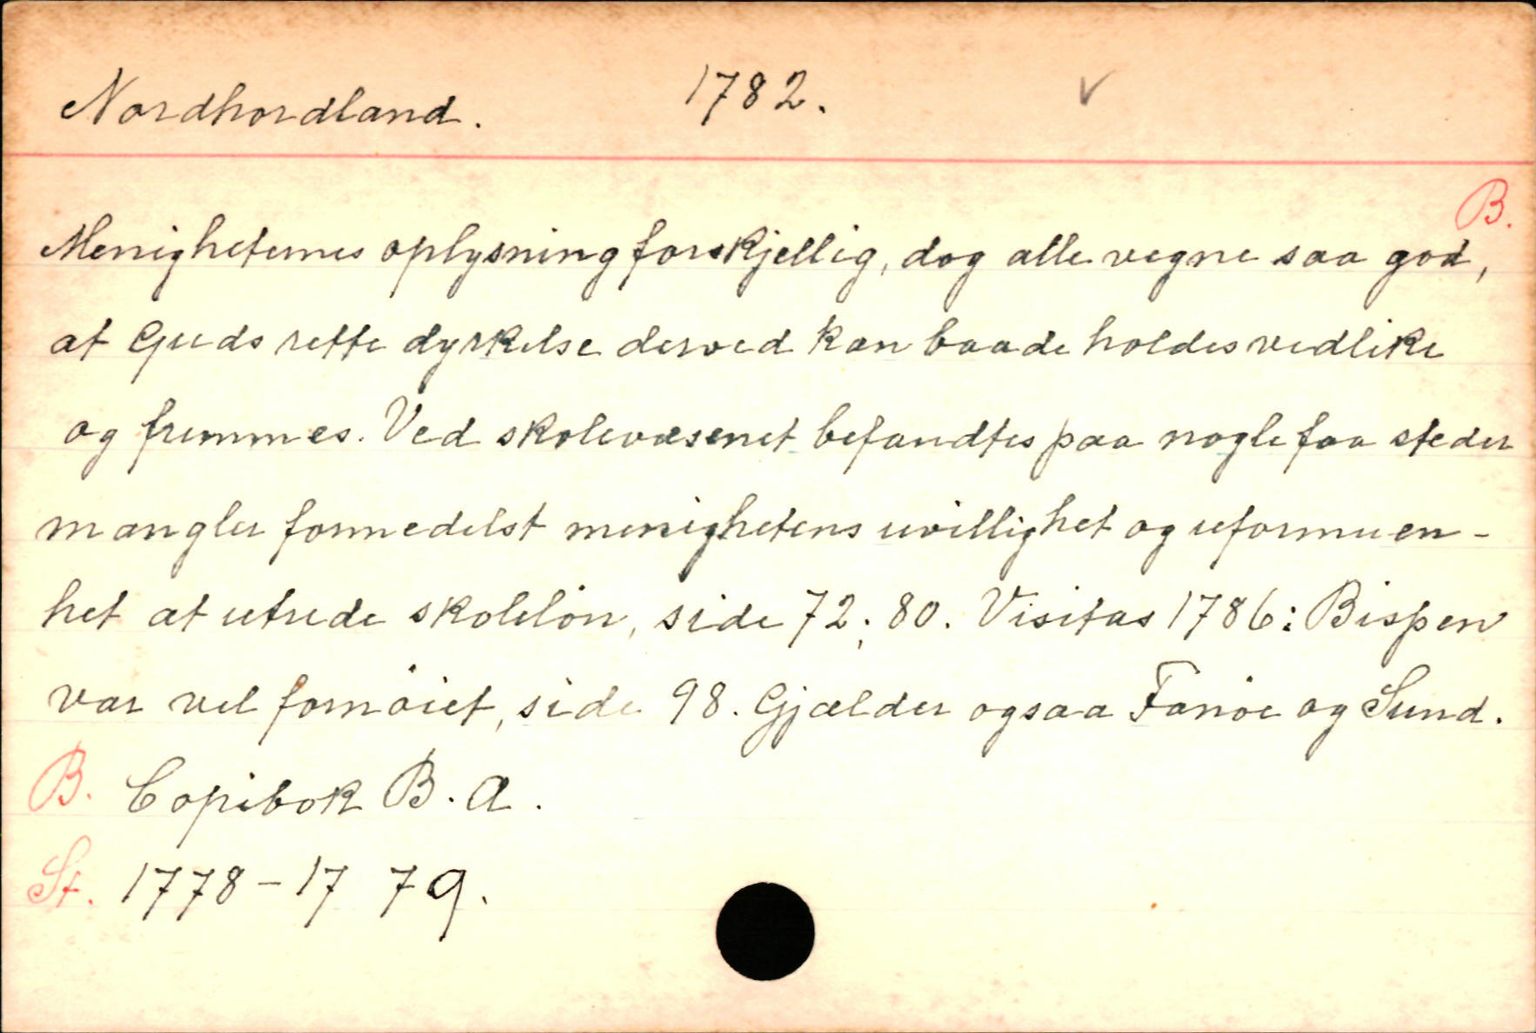 Nordhordland. 1782. ✓
B.
Menigheternes oplysning forskjellig, dog alle vegne saa god,
at Guds rette dyrkelse derved kan baade holdes vedlike
og fremmes. Ved skolevæsenet befandtes paa nogle faa steder
mangler formedelst menighetens uvillighet og uformuen-
het at utrede skoleløn, side 72; 80. Visitas 1786: Bispen
var vel fornøiet, side 98. Gjælder ogsaa Fanøe og Sund.
B. Copibok B. A.
St. 1778-17 79.